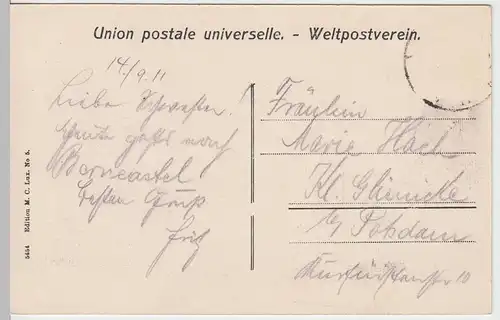 Union postale universelle. - Weltpostverein.
14/9.11
Liebe Schwester!
Heute gehts nach
Berncastel
besten Gruß
Fritz
Fräulein
Marie Hach
Kl. Glienicke
b/ Potsdam
Kurfürstenstr 10
5454 Edition M. C. Lux. No 5.